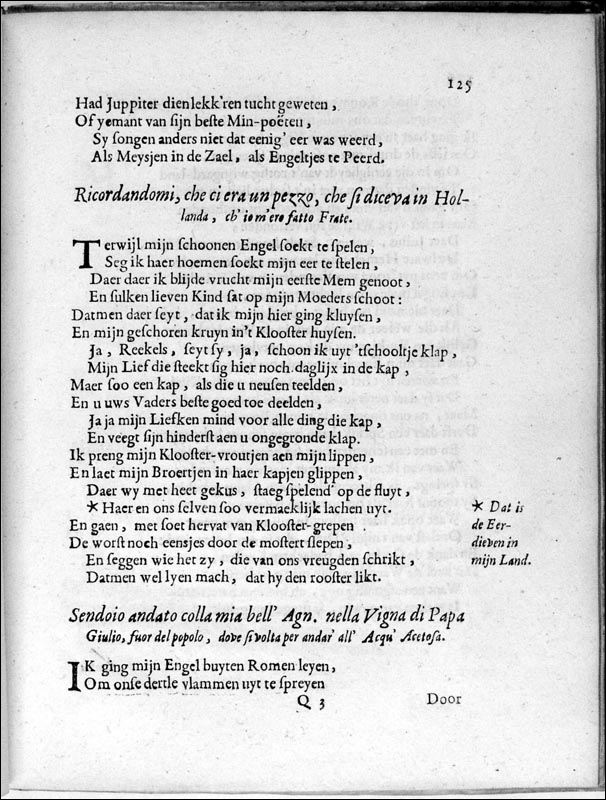 125
Had Juppiter dien lekk'ren tucht geweten,
Of yemant van sijn beste Min-poëten,
Sy songen anders niet dat eenig' eer was weerd,
Als Meysjen in de Zael, als Engeltjes te Peerd.
Ricordandomi, che ci era un pezzo, che si diceva in Hol-
landa, ch' io m'ero fatto Frate.
Terwijl mijn schoonen Engel soekt te spelen,
Seg ik haer hoemen soekt mijn eer te stelen,
Daer daer ik blijde vrucht mijn eerste Mem genoot,
En sulken lieven Kind sat op mijn Moeders schoot:
Datmen daer seyt, dat ik mijn hier ging kluysen,
En mijn geschoren kruyn in't Klooster huysen.
Ja, Reekels, seyt sy, ja, schoon ik uyt 'tschooltje klap,
Mijn Lief die steekt sig hier noch daglijx in de kap,
Maer soo een kap, als die u neusen teelden,
En u uws Vaders beste goed toe deelden,
Ja ja mijn Liefken mind voor alle ding die kap,
En veegt sijn hinderst aen u ongegronde klap.
Ik preng mijn Klooster-vroutjen aen mijn lippen,
En laet mijn Broertjen in haer kapjen glippen,
Daer wy met heet gekus, staeg spelend' op de fluyt,
* Haer en ons selven soo vermaeklijk lachen uyt.
* Dat is
de Eer-
dieven in
mijn Land.
En gaen, met soet hervat van Klooster-grepen
De worst noch eensjes door de mostert slepen,
En seggen wie het zy, die van ons vreugden schrikt,
Datmen wel lyen mach, dat hy den rooster likt.
Sendoio andato colla mia bell' Agn. nella Vigna di Papa
Giulio, fuor del popolo, dove si volta per andar' all' Acqu' Acetosa.
IK ging mijn Engel buyten Romen leyen,
Om onse dertle vlammen uyt te spreyen
Q 3
Door